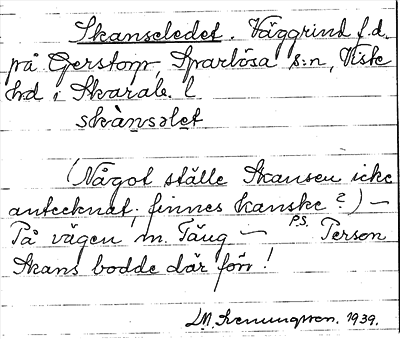 Skanseledet. Väggrind f.d.
på Gerstorp, Sparlösa s:n, Viste
hd i Skarab. l
skànsəlet
(Något ställe Skansen icke
antecknat; finnes kanske?) —
På vägen m. Täng — P.S. Person
Skans bodde där förr!
1939.